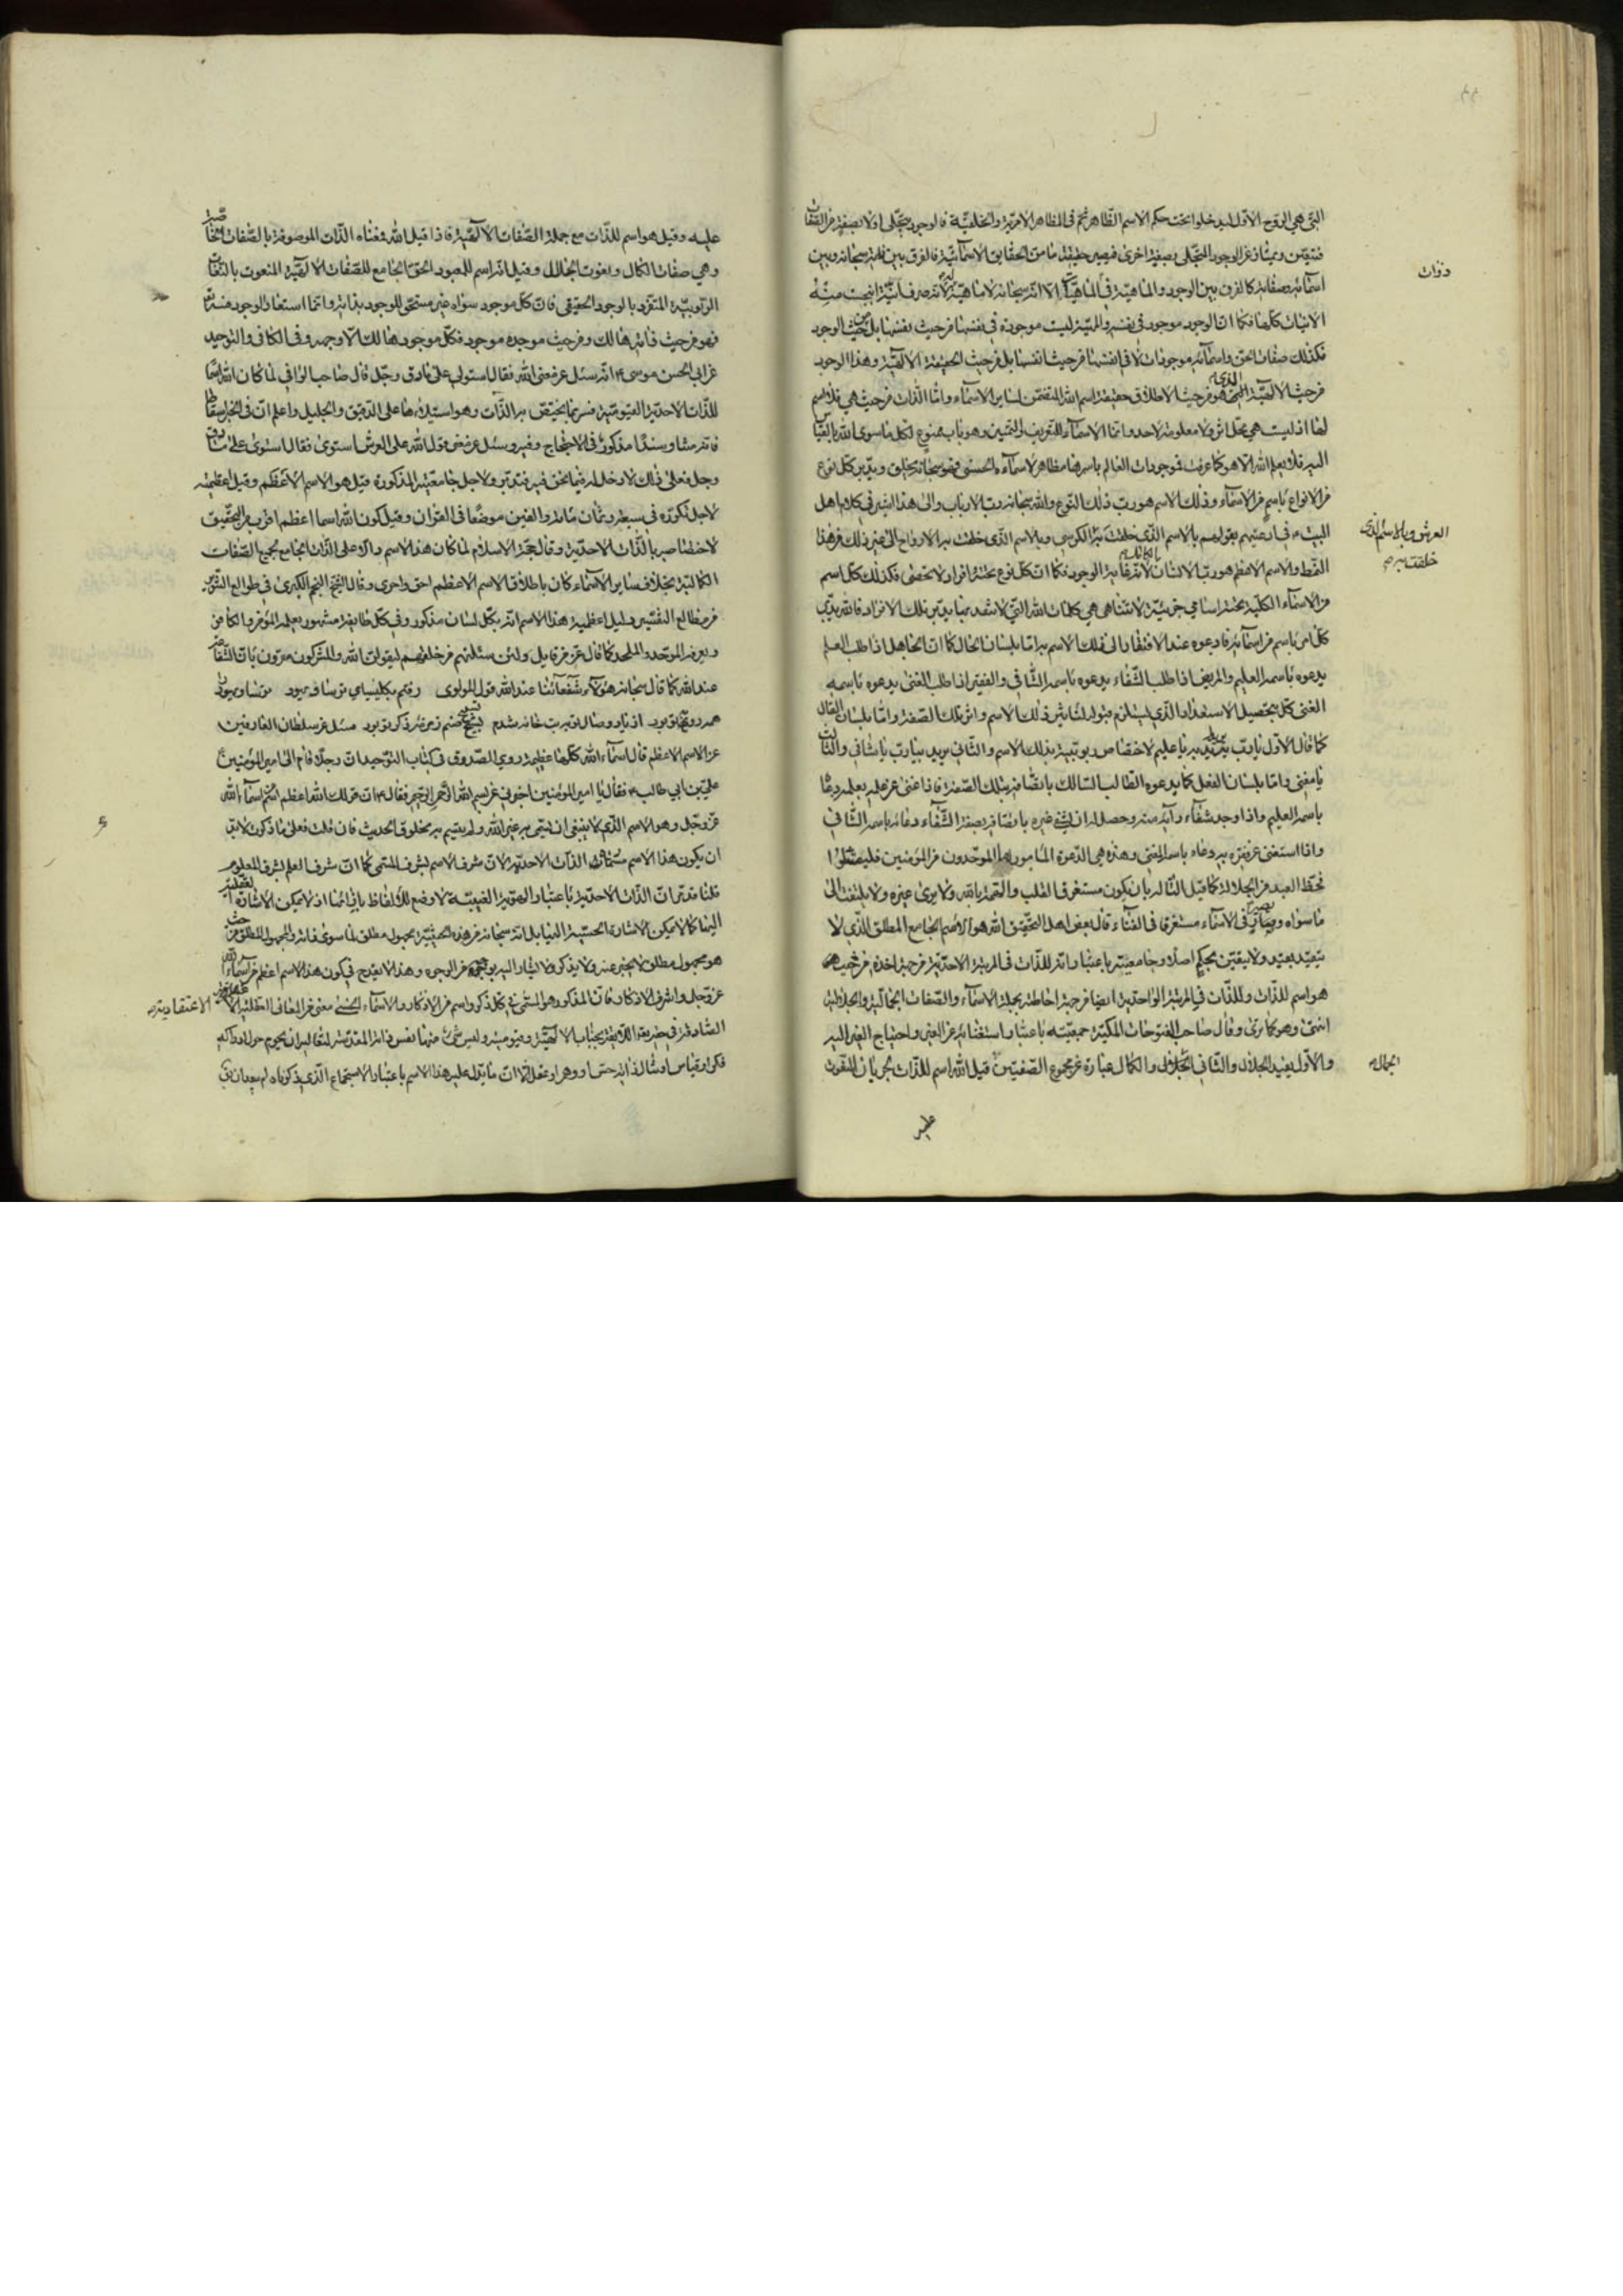 التي هي الروح الاول ليدخلوا تحت حكم الاسم الظاهر ثم في المظاهر الامرية والخلقية فالوجود يتجلى اولا بصفة من الصفات
فيتعين ويمتاز عن الوجود المتجلى بصفة اخرى فيصير حقيقة ما من الحقايق الاسمائية فالفرق بين ذاته سبحانه وبين
ذوات
اسمائه وصفاته كالفرق بين الوجود والماهية في الماهية الا انه سبحانه لا ماهية له لانه صرف انية انبجست منه
الانيات كلها فكما ان الوجود موجود في نفسه والماهية ليست موجودة في نفسها من حيث نفسها بل من حيث الوجود
فكذلك صفات الحق واسمائه موجودات لا في انفسها من حيث انفسها بل من حيث الحقيقة الالهية وهذا الوجود
من حيث الالهية الذي هو من حيث الاطلاق حقيقة اسم الله المتضمن لساير الاسماء واما الذات من حيث هي فلا اسم
لها اذ ليست هي محل اثر ولا معلومة لاحد وانما الاسماء للتعريف والتميز وهو باب ممنوع لكل ما سوى الله بالقياس
اليه فلا يعلم الله الا هو كما عرفت فوجودات العالم باسرها مظاهر لاسماء الحسنى فهو سبحانه يخلق ويدبر كل نوع
من الانواع باسم من الاسماء وذلك الاسم هو رب ذلك النوع والله سبحانه رب الارباب والى هذا اشير في كلام اهل
البيت ع في ادعيتهم بقولهم بالاسم الذي خلقت به العرش وبالاسم الذي خلقت به الكرسي وبالاسم الذي خلقت به الارواح الى غير ذلك من هذا
النمط والاسم الاعظم هو رب الانسان الكامل لانه غاية الوجود فكما ان كل نوع تحته افراد لا تحصى فكذلك كل اسم
من الاسماء الكلية تحته اسامي جزئية لا تتناهى هي كلمات الله التي لا تنفد بها يدبر تلك الافراد فالله يدبر
كل امر باسم من اسمائه فادعوه عند الافتقار الى ذلك الاسم به اما بلسان الحال كما ان الجاهل اذا طلب العلم
يدعوه باسمه العليم والمريض اذا طلب الشفاء يدعوه باسمه الشافي والفقير اذا طلب الغنى يدعوه باسمه
المغني كل بتحصيل الاستعداد الذي يستلزم قبوله لتاثير ذلك الاسم واثر تلك الصفة واما بلسان القال
كما قال الاول يا رب يريد به يا عليم لاختصاص ربوبيته بذلك الاسم والثاني يريد بيا رب يا شافي والثالث
يا مغني واما بلسان الفعل كما يدعوه الطالب السالك باتصافه بتلك الصفة فاذا غنى عن علمه بعلمه دعا
باسمه العليم واذا وجد شفاء دائه منه وحصل له ان يشفي غيره باتصافه بصفة الشفاء دعاه باسمه الشافي
واذا استغنى عن غيره به دعاه باسمه المغني وهذه هي الدعوة المامور بها الموحدون من المؤمنين فليمتثلوا
فحظ العبد من الجلالة كما قيل التاله بان يكون مستغرق القلب والهمة بالله ولا يرى غيره ولا يلتفت الى
ما سواه في الاسماء مستغرقا في الفناء قال بعض اهل التحقيق الله هو الاسم الجامع المطلق الذي لا
يتقيد بقيد ولا يتعين بحكم اصلا وجامعيته باعتبار انه للذات في المرتبة الاحدية من جهة اخذه من حيث
هو اسم للذات وللذات في المرتبة الواحدية ايضا من جهة احاطته بجملة الاسماء والصفات الجمالية والجلالية
انتهى وهو كما ترى وقال صاحب الفتوحات المكية جمعيته باعتبار استغنائه عن الغير واحتياج الغير اليه
والاول يفيد الجلال والثاني الجمال والكمال عبارة عن مجموع الصفتين قيل الله اسم للذات لجريان النعوت
عليه
عليه وقيل هو اسم للذات مع جملة الصفات الالهية فاذا قيل الله فمعناه الذات الموصوفة بالصفات الخاصة
وهي صفات الكمال ونعوت الجلال وقيل انه اسم للموجود الحق الجامع للصفات الالهية المنعوت بالنعوت
الربوبية المتفرد بالوجود الحقيقي فان كل موجود سواه غير مستحق للوجود بذاته وانما استعاد الوجود منه
فهو من حيث ذاته هالك ومن حيث موجده موجود فكل موجود هالك الا وجهه وفي الكافي والتوحيد
عن ابي الحسن موسى ع انه سئل عن معنى الله فقال استولى على ما دق وجل قال صاحب الوافي لما كان الله اسما
للذات الاحدية القيومية فسر بما يختص به الذات وهو استيلاؤها على الدقيق والجليل واعلم ان في الخبر سقطا
فانه متنا وسندا مذكور في الاحتجاج وفيه وسئل عن معنى قول الله على العرش استوى فقال استولى على ما دق
وجل فعلى ذلك لا دخل له فيما نحن فيه فتدبر ولاجل جامعيته المذكورة قيل هو الاسم الاعظم وقيل اعظميته
لاجل تكرره في سبعة وثمان مائة والفين موضعا في القران وقيل كون الله اسما اعظم اقرب الى التحقيق
لاختصاصه بالذات الاحدية وقال حجة الاسلام لما كان هذا الاسم دالا على الذات الجامع لجميع الصفات
الكمالية بخلاف ساير الاسماء كان باطلاق الاسم الاعظم احق واحرى وقال الشيخ النجم الكبرى في طوالع التنوير
من مطالع التفسير دليل اعظمية هذا الاسم انه بكل لسان مذكور وفي كل طايفة مشهور يعلمه المؤمن والكافر
ويعرفه الموحد والملحد كما قال عز من قايل ولئن سئلتهم من خلقهم ليقولن الله والمشركون مقرون بان الشفاعة
عند الله كما قال سبحانه هؤلاء شفعاؤنا عند الله قول المولوي رفتم بكليسياي ترسا و يهود ترسا و يهود
همه رو بتو بود از ياد وصال تو به بتخانه شدم تسبيح صنم زمزمه ذكر تو بود سئل عن سلطان العارفين
عن الاسم الاعظم قال اسماء الله كلها عظيمة روى الصدوق في كتاب التوحيد ان رجلا قام الى امير المؤمنين
علي بن ابي طالب ع فقال يا امير المؤمنين اخبرني عن بسم الله الرحمن الرحيم فقال ع ان قولك الله اعظم اسم من اسماء الله
عز وجل وهو الاسم الذي لا ينبغي ان يتسمى به غير الله ولم يتسم به مخلوق الحديث فان قلت فعلى ما ذكرت لا بد
ان يكون هذا الاسم مسماه الذات الاحدية لان شرف الاسم بشرف المسمى كما ان شرف العلم بشرف المعلوم
قلنا قد مر ان الذات الاحدية باعتبار الهوية الغيبية لا وضع للالفاظ بازائها اذ لا يمكن الاشارة العقلية
اليها كما لا يمكن الاشارة الحسية اليها بل انه سبحانه من هذه الحيثية مجهول مطلق لما سوى ذاته والمجهول المطلق من حيث
هو مجهول مطلق لا يخبر عنه ولا يذكر ولا يشار اليه بوجه من الوجوه وهذا لا يقدح في كون هذا الاسم اعظم من اسماء الله
عز وجل واشرف الاذكار فان المذكور هو المسمى في كل ذكر واسم من الاذكار والاسماء الحسنى معنى من المعاني العقلية الاعتقادية
الصادقة في حقه اللايقة بجناب الالهية وقيوميته وليس شئ منها نفس ذاته المقدسة لتعاليه ان يحوم حول ادراكه
فكر او قياس او ينال ذاته حس او وهم او عقل الا ان ما يدل عليه هذا الاسم باعتبار الاستجماع الذي ذكرناه لم يبعد ان يقال